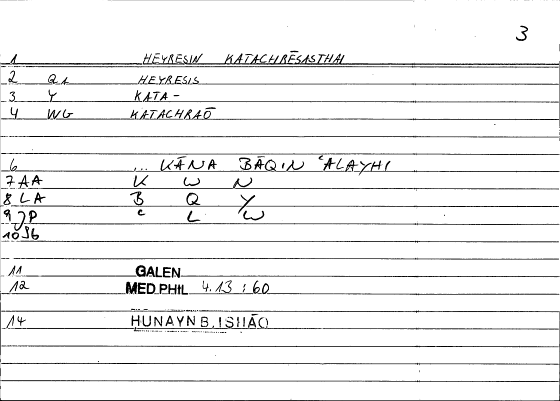 3
1 HEYRESIN KATACHRĒSASTHAI
2 QA HEYRESIS
3 Y KATA-
4 WG KATACHRAŌ
6 ... KĀNA BĀQIN ʿALAYHI
7 AA K W N
8 LA B Q Y
9 JP ʿ L W
10 36
11 GALEN
12 MED PHIL 4.13:60
14 HUNAYN B. ISHĀQ